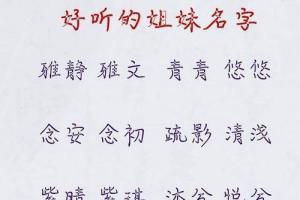 好听的姐妹名字
雅静 雅文 青青 悠悠
念安 念初 疏影 清浅
紫晴 紫琪 沐兮 悦兮